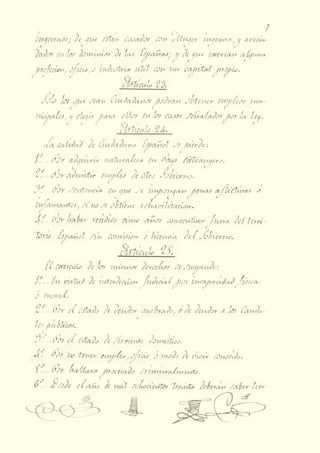 7
ingenuos; de que estén casados con Muger ingenua, y avecin-
dados en los dominios de las Españas; y de que exerzan alguna
profesion, oficio, ó industria util con un capital propio.
Articulo 23.
Solo los que sean Ciudadanos podrán obtener empleos mu-
nicipales, y elegir para ellos en los casos señalados por la ley.
Articulo 24.
La calidad de Ciudadano Español se pierde:
1º.. Por adquirir naturaleza en Pays Extrangero.
2º.. Por admitir empleo de otro Gobierno.
3º.. Por sentencia en que se impongan penas aflictivas ó
infamantes, si no se obtiene rehabilitacion.
4º.. Por haber residido cinco años consecutivos fuera del terri-
torio Español sin comision ó licencia del Gobierno.
Articulo 25.
El exercicio de los mismos derechos se suspende:
1º.. En virtud de interdiccion Judicial por incapacidad fisica
ó moral.
2º.. Por el estado de deudor quebrado, ó de deudor á los Cauda-
les públicos.
3º.. Por el estado de sirviente doméstico.
4º.. Por no tener empleo, oficio, ó modo de vivir conocido.
5º.. Por hallarse procesado criminalmente.
6º.. Desde el año de mil ochocientos treinta deberán saber leer